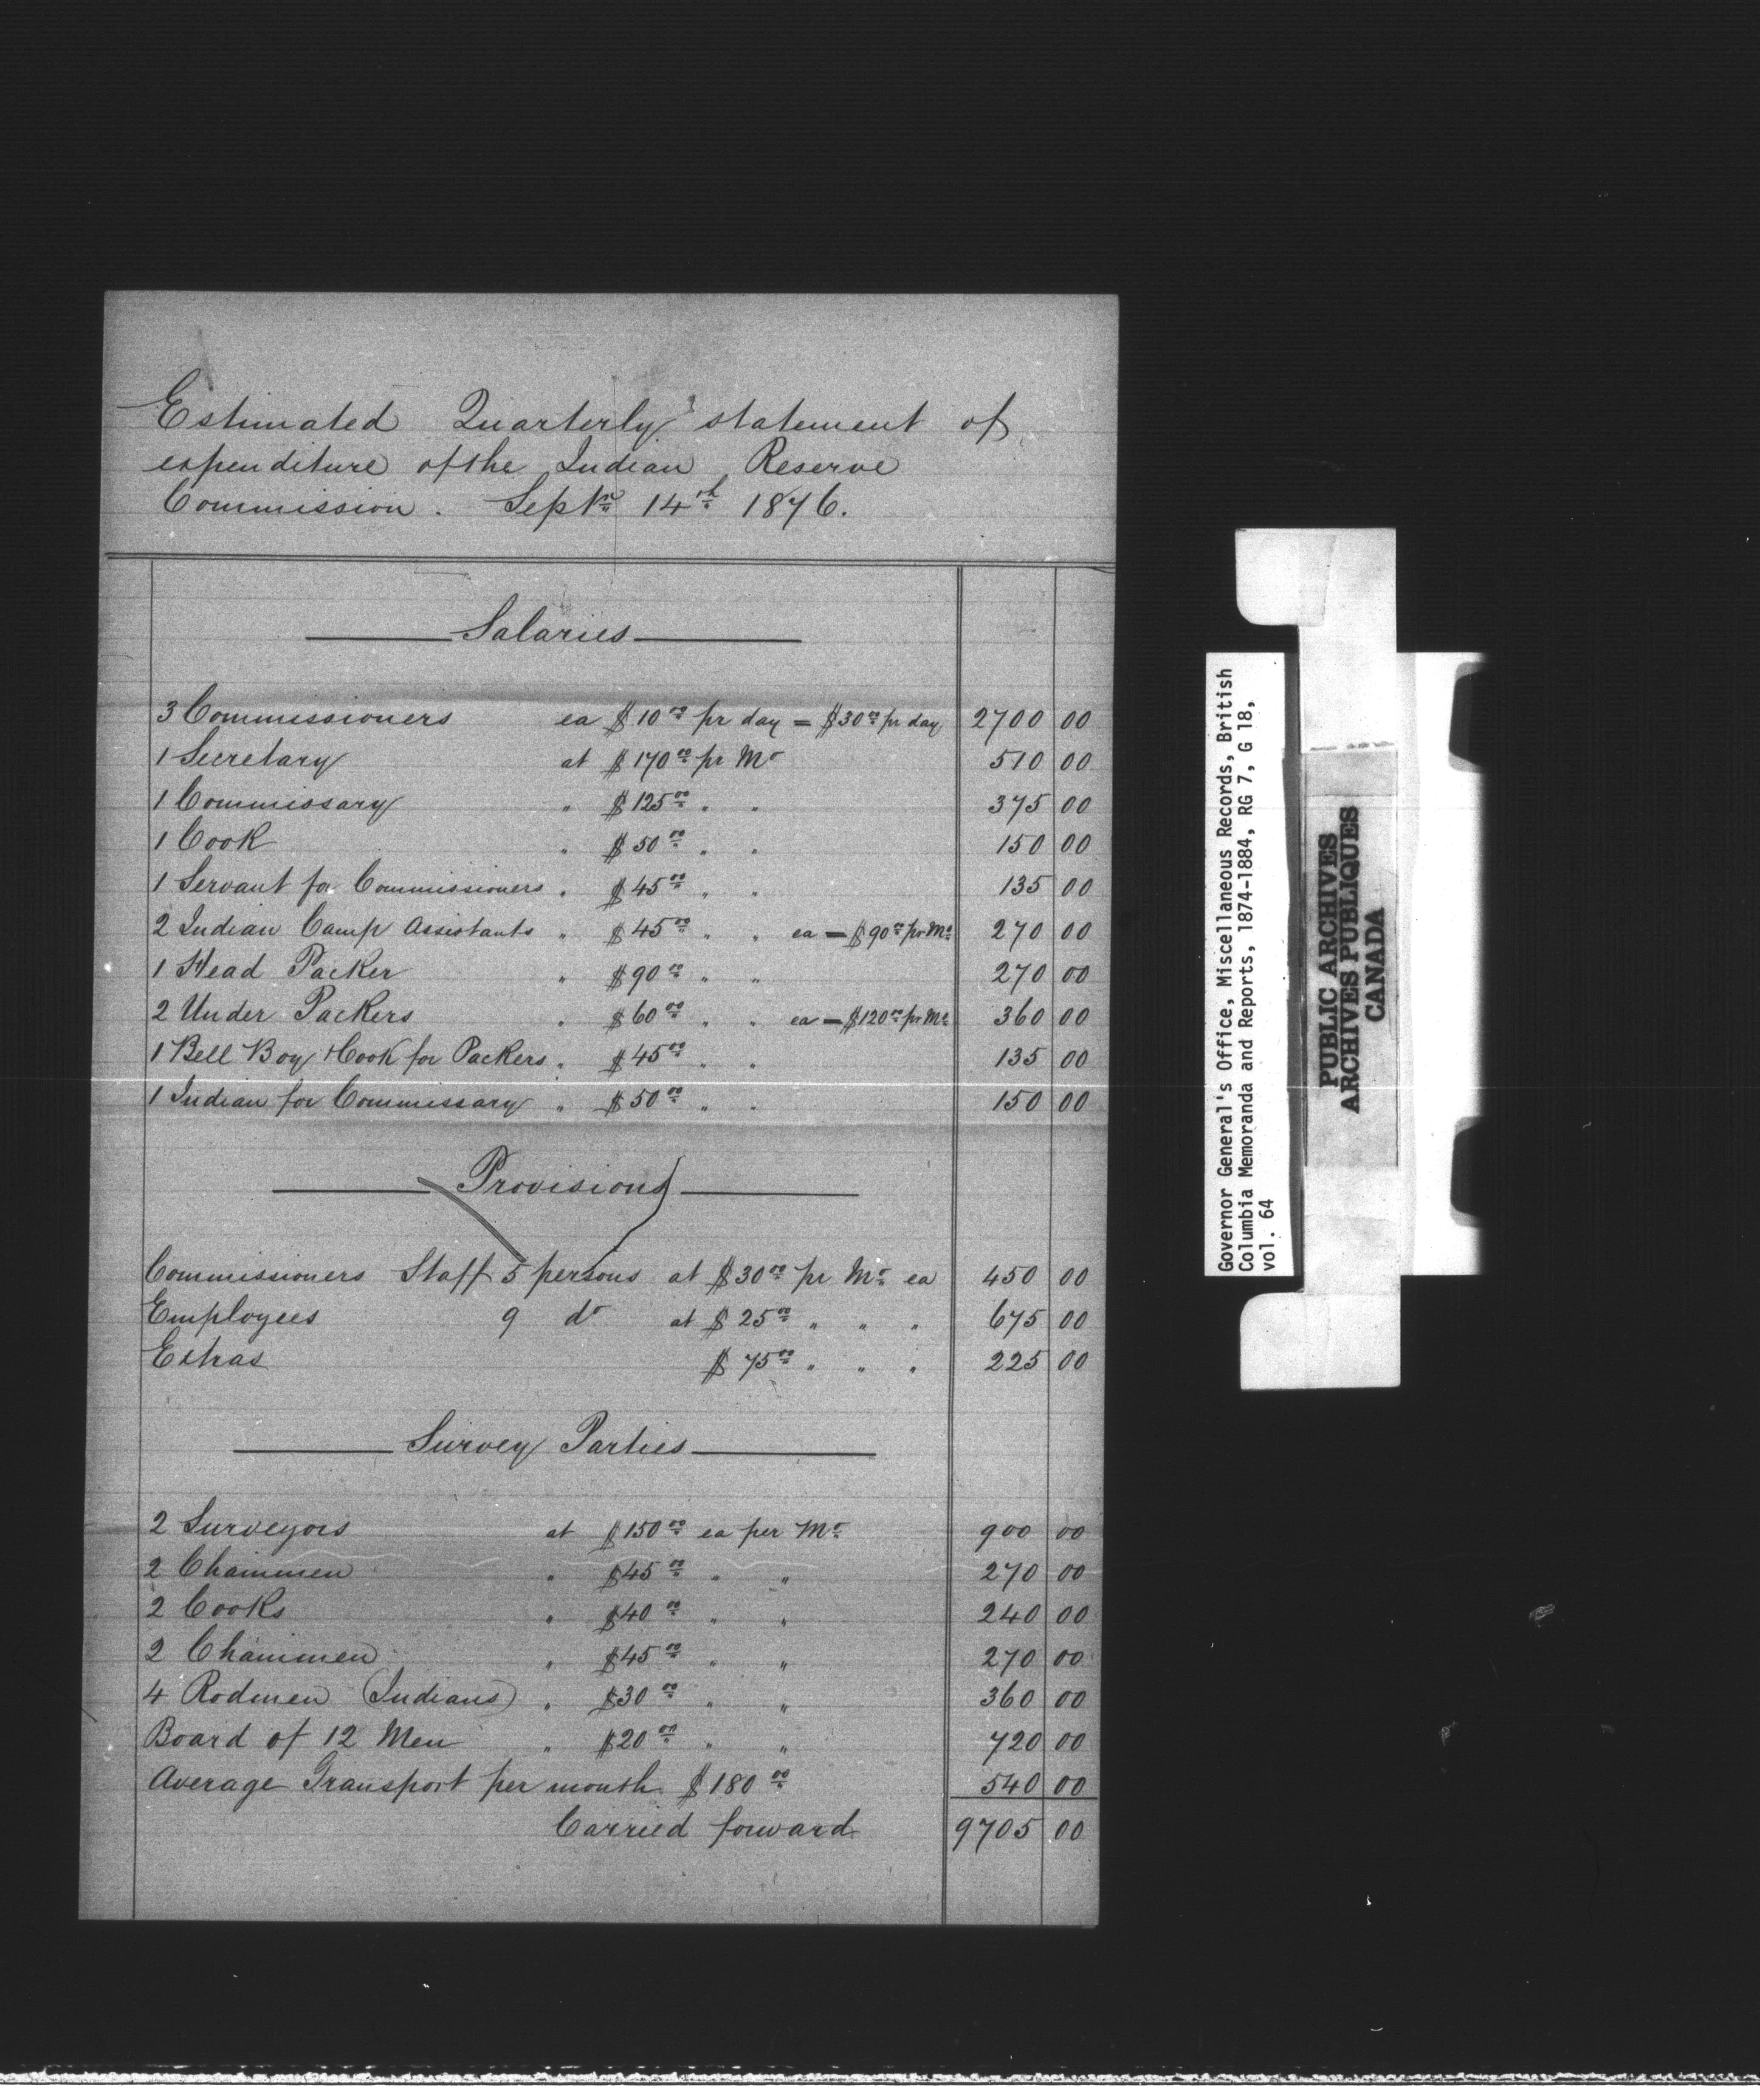 Estimated Quarterly statement of
expenditure of the Indian Reserve
Commission. Septr 14th 1876.
Salaries
3 Commissioners ea $10.00 pr day = $30.00 pr day 2700 00
1 Secretary at $170.00 pr Mo 510 00
1 Commissary " $125.00 " " 375 00
1 Cook " $50.00 " " 150 00
1 Servant for Commissioners " $45.00 " " 135 00
2 Indian Camp Assistants " $45.00 " " ea = $90.00 pr Mo 270 00
1 Head Packer " $90.00 " " 270 00
2 Under Packers " $60.00 " " ea = $120.00 pr Mo 360 00
1 Bell Boy & Cook for Packers " $45.00 " " 135 00
1 Indian for Commissary " $50.00 " " 150 00
Provisions
Commissioners Staff 5 persons at $30.00 pr Mo ea 450 00
Employees 9 do at $25.00 " " " 675 00
Extras $75.00 " " " 225 00
Survey Parties
2 Surveyors at $150.00 ea per Mo 900 00
2 Chainmen " $45.00 " " 270 00
2 Cooks " $40.00 " " 240 00
2 Chainmen " $45.00 " " 270 00
4 Rodmen (Indians) " $30.00 " " 360 00
Board of 12 Men " $20.00 " " 720 00
Average Transport per month $180.00 540 00
Carried forward 9705 00
Governor General's Office, Miscellaneous Records, British
Columbia Memoranda and Reports, 1874-1884, RG 7, G 18,
vol. 64
PUBLIC ARCHIVES
ARCHIVES PUBLIQUES
CANADA